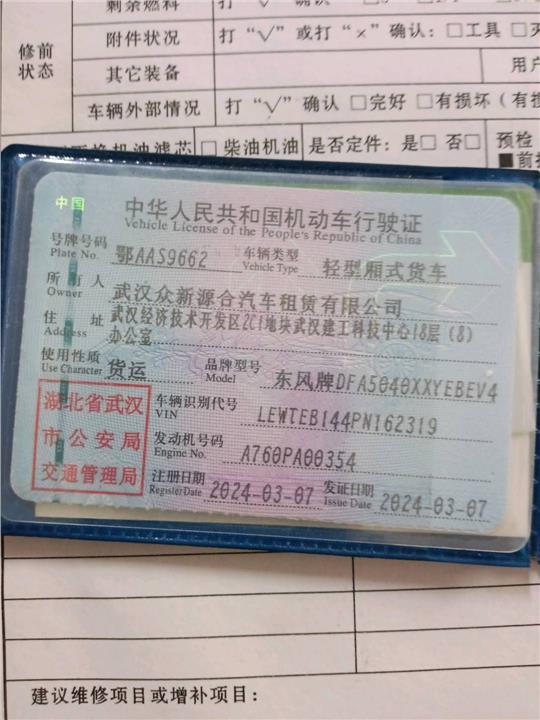 剩余燃料
打“√”
修前状态
附件状况
打“√”或打“×”确认：□工具
其它装备
用户
车辆外部情况
打“√”确认 □完好 □有损坏（有损
□ 柴油机油
是否定件：是□ 否□
预检
中国
中华人民共和国机动车行驶证
Vehicle License of the People's Republic of China
号牌号码 鄂AAS9662 车辆类型 轻型厢式货车
Plate No. Vehicle Type
所有人 武汉众新源合汽车租赁有限公司
Owner
住址 武汉经济技术开发区2C1地块武汉建工科技中心18层（8）
Address 办公室
使用性质 货运 品牌型号 东风牌DFA5040XXYEBEV4
Use Character Model
湖北省武汉
市公安局
交通管理局
车辆识别代号 LEWTEB144PN162319
VIN
发动机号码 A760PA00354
Engine No.
注册日期 2024-03-07 发证日期 2024-03-07
Register Date Issue Date
建议维修项目或增补项目：